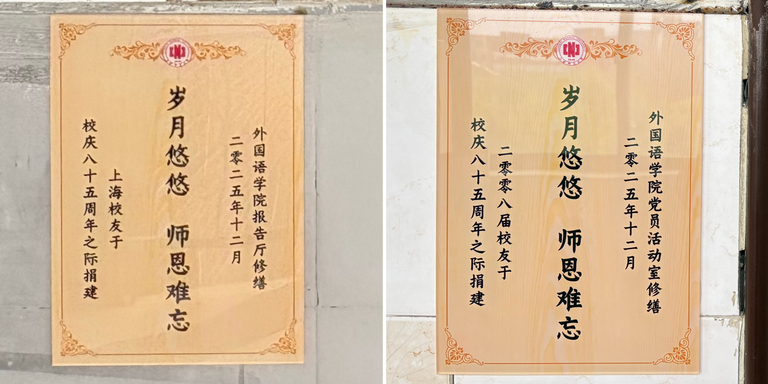 外国语学院报告厅修缮
二零二五年十二月
岁月悠悠 师恩难忘
上海校友于
校庆八十五周年之际捐建
外国语学院党员活动室修缮
二零二五年十二月
岁月悠悠 师恩难忘
二零零八届校友于
校庆八十五周年之际捐建